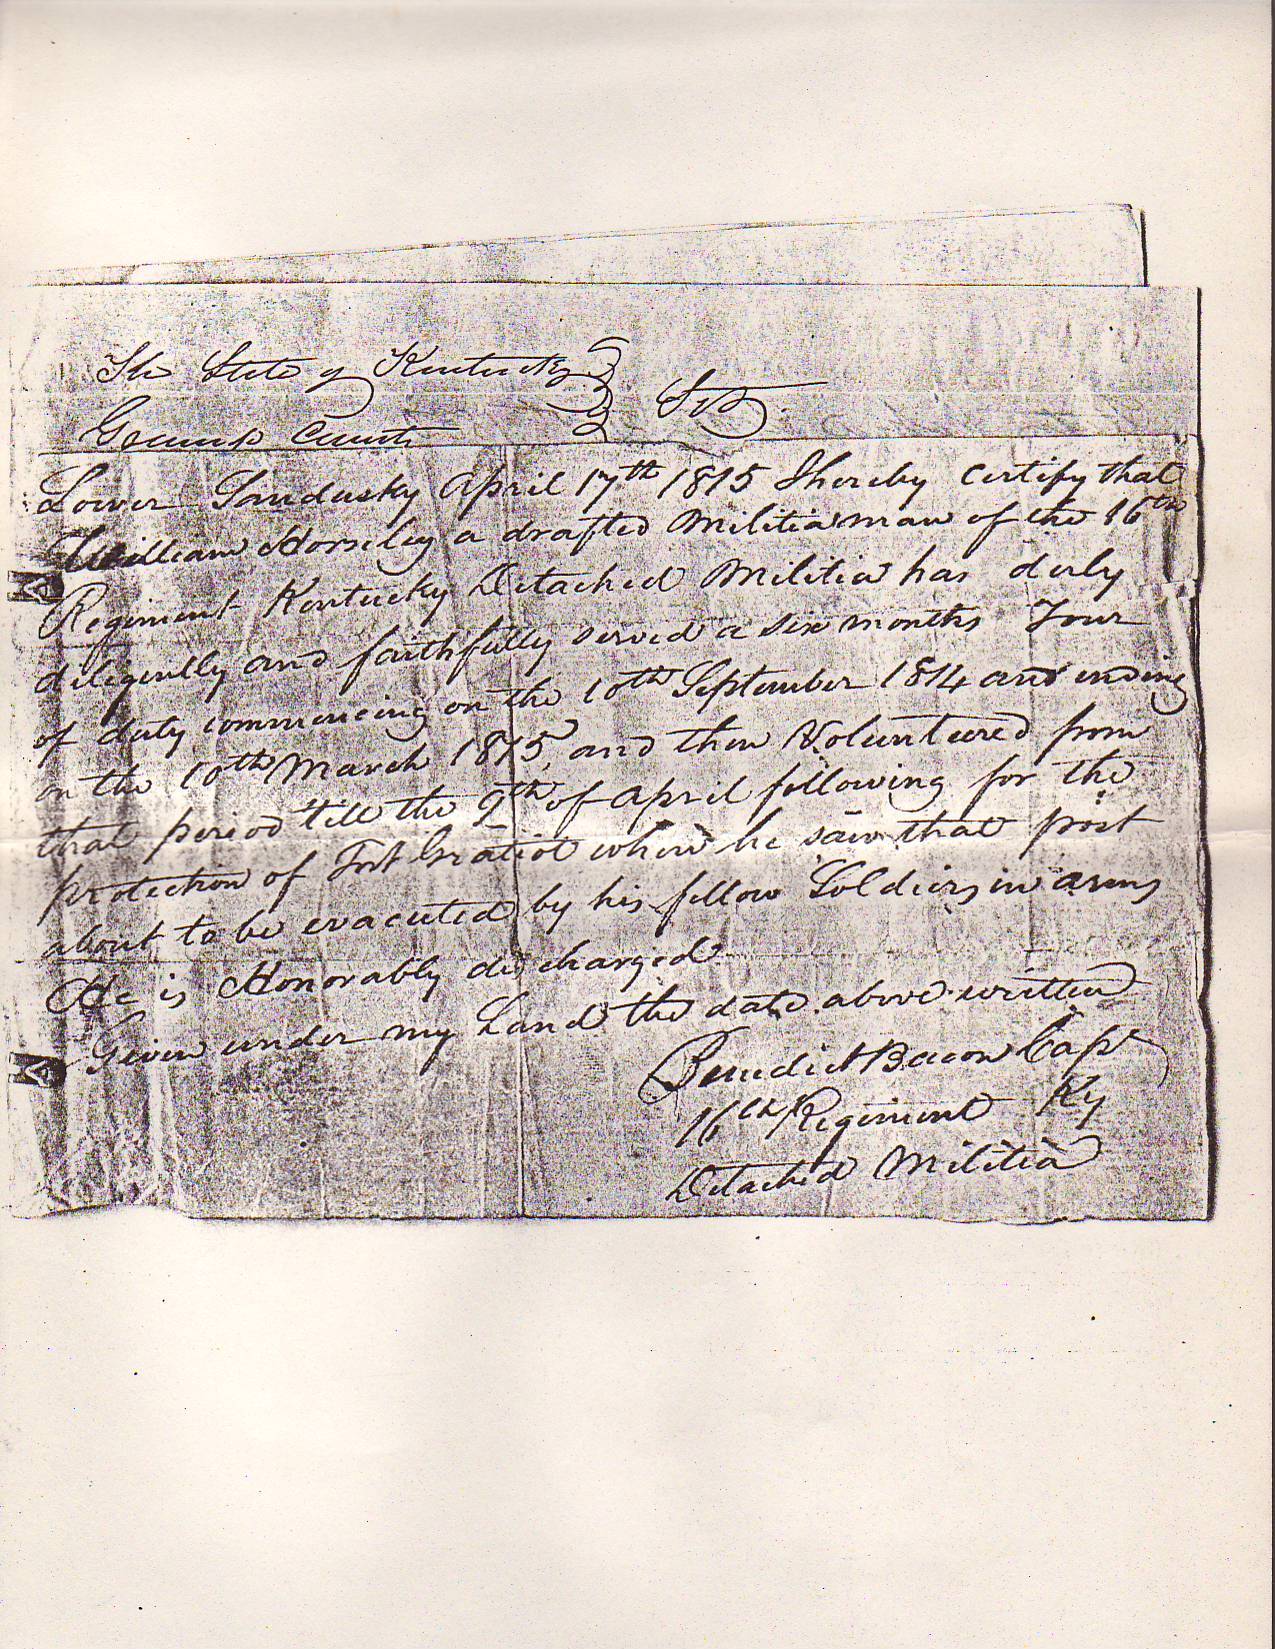 The State of Kentucky
Greenup County Sct
Lower Sandusky April 17th 1815 I hereby certify that
William Horseley a drafted Militia man of the 16th
Regiment Kentucky Detached Militia has duly
diligently and faithfully served a six months Tour
of duty commencing on the 10th September 1814 and ending
on the 10th March 1815, and then Volunteered from
that period till the 9th of April following for the
protection of Fort Gratiot where he saw that post
about to be evacuted by his fellow Soldiers in arms
He is Honorably discharged
Given under my hand the date above written
Benedict Bacon Capt
16th Regiment Ky
Detached Militia